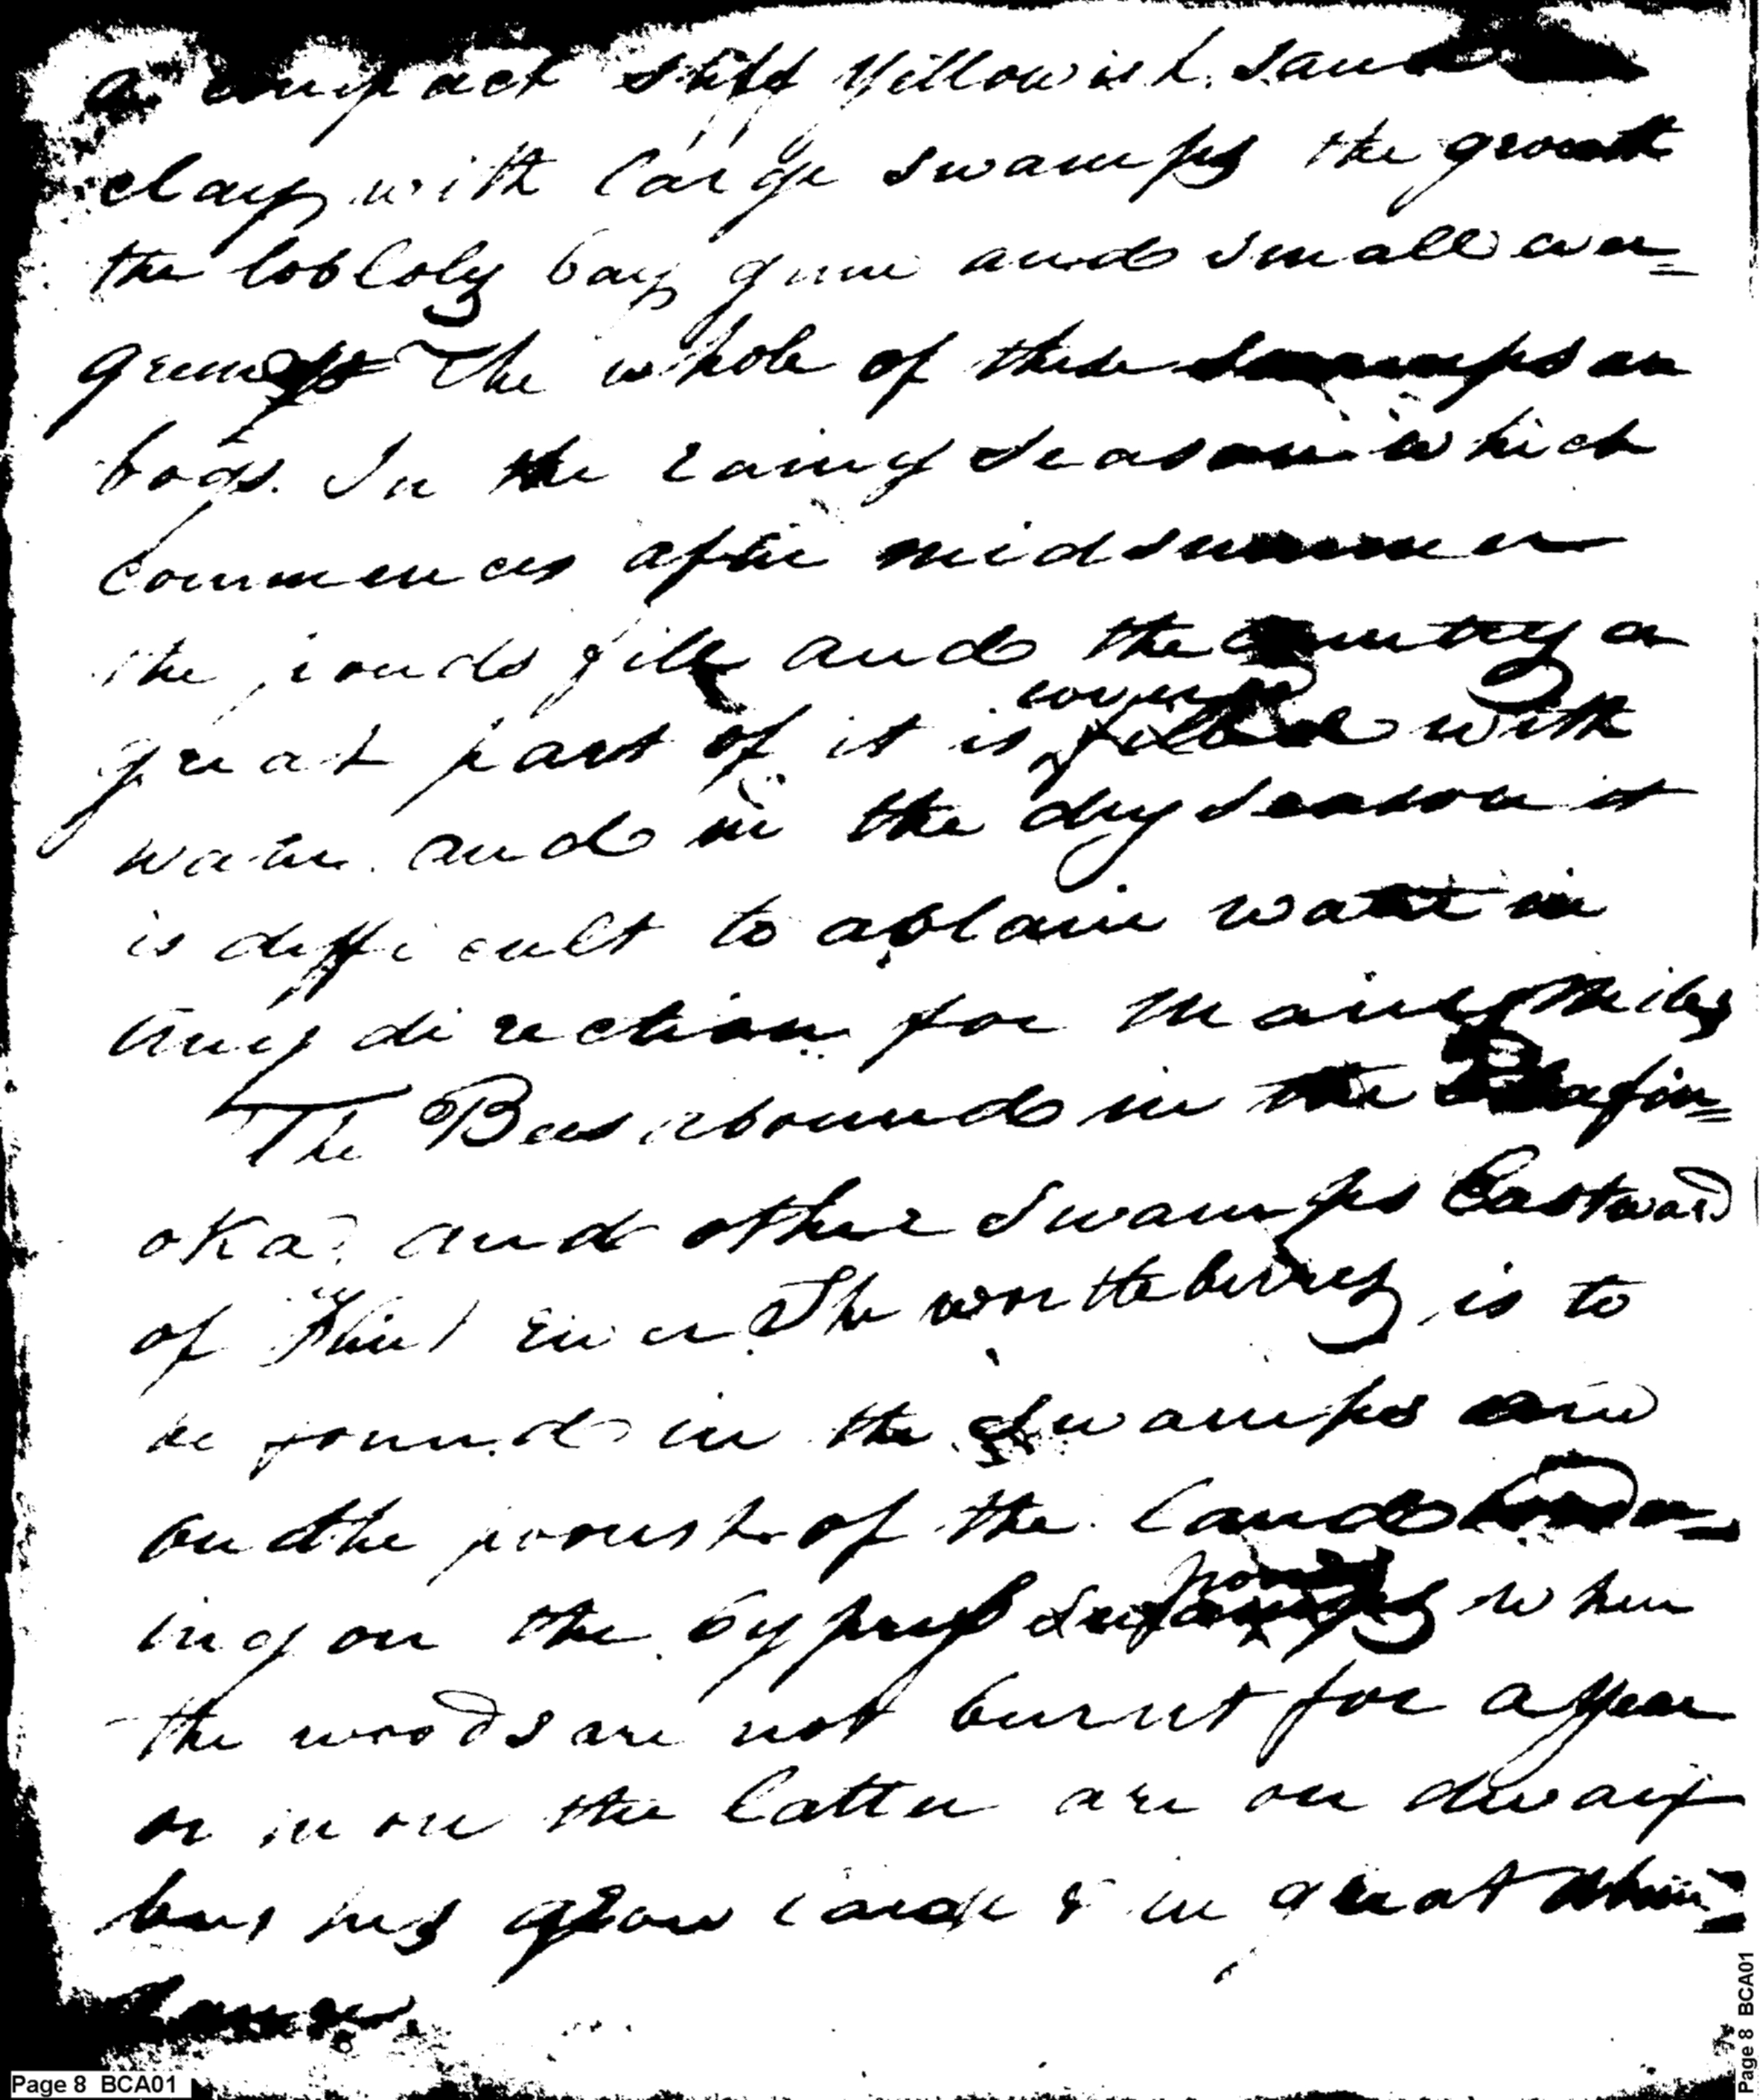 a compact stiff yellowish sand
clay with large swamps the growth
the lobloly bay gum and small ever=
greens The whole of these swamps are
bogs. In the rainy season which
commences after midsummer
the ponds fill and the country a
great part of it is covered filled with
water and in the dry season it
is difficult to obtain water in
any direction for many miles
The Bees abound in the Okafin=
oka and other swamps Eastward
of Flint river The wortleberry is to
be found in the swamps and
on the poorest of the land border=
ing on the cypress ponds swamps when
the woods are not burnt for a year
or more the latter are on dwarf
bushes grow large & in great abun=
dance.
Page 8 BCA01
Page 8 BCA01